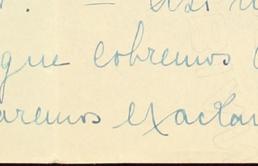 — así
que cobremos
aremos exacta